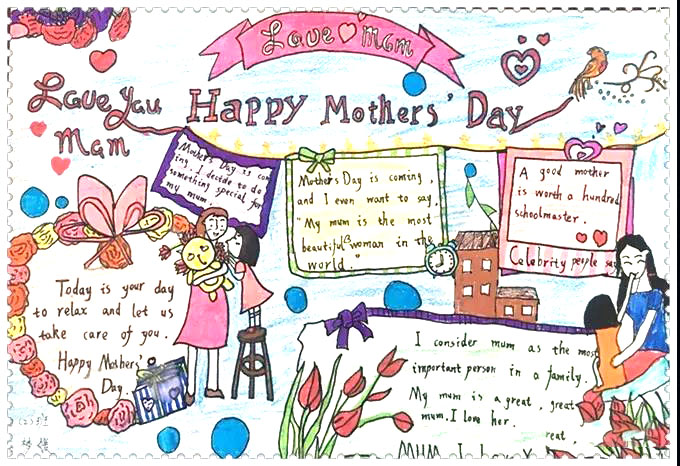 Love Mam
Love You
Mam
Happy Mothers' Day
Mothers Day is co
ing, I decide to do
something special for
my mum.
Mothers Day is coming,
and I even want to say,
"My mum is the most
beautiful woman in the
world."
A good mother
is worth a hundred
schoolmaster.
Celebrity people say
Today is your day
to relax and let us
take care of you.
Happy Mothers'
Day
I consider mum as the most
important person in a family.
My mum is a great, great
mum. I love her.
reat,
MUM I
(2)班